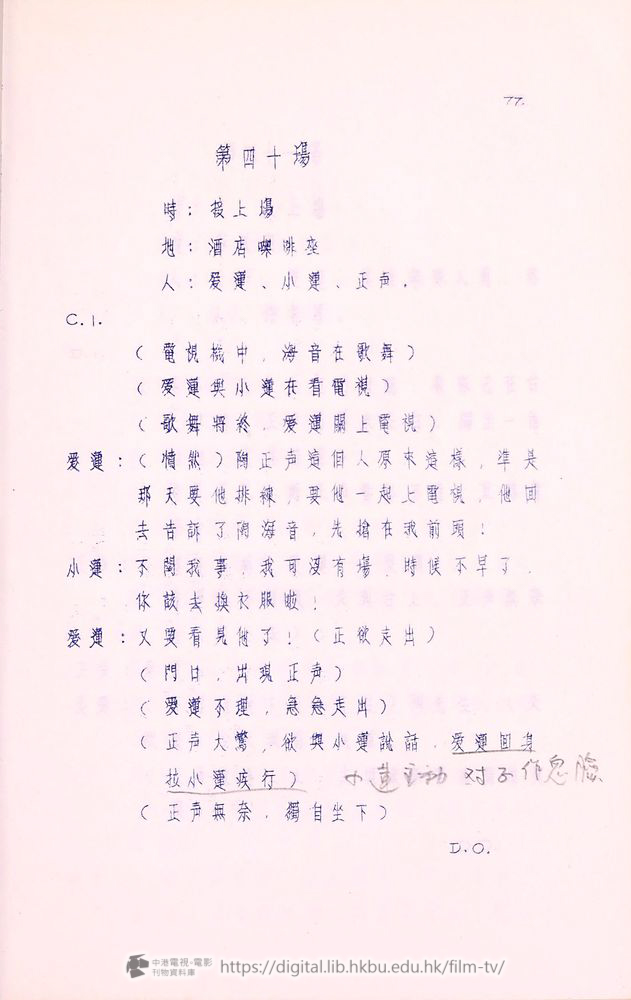 77.
第四十場
時：接上場
地：酒店㗎啡座
人：爱蓮、小蓮、正声.
C.1.
（電視機中，海音在歌舞）
（爱蓮與小蓮在看電視）
（歌舞將終，爱蓮關上電視）
爱蓮：（憤然）陶正声這個人原來這樣，準是
那天要他排練，要他一起上電視，他回
去告訴了陶海音，先搶在我前頭！
小蓮：不関我事，我可沒有場，時候不早了，
你該去換衣服啦！
爱蓮：又要看見他了！（正欲走出）
（門口，出現正声）
（爱蓮不理，急急走出）
（正声大驚，欲與小蓮說話，爱蓮回身
拉小蓮疾行）小蓮主动 对子作忽臉
（正声無奈，獨自坐下）
D.O.
中港電視·電影
刊物資料庫
https://digital.lib.hkbu.edu.hk/film-tv/